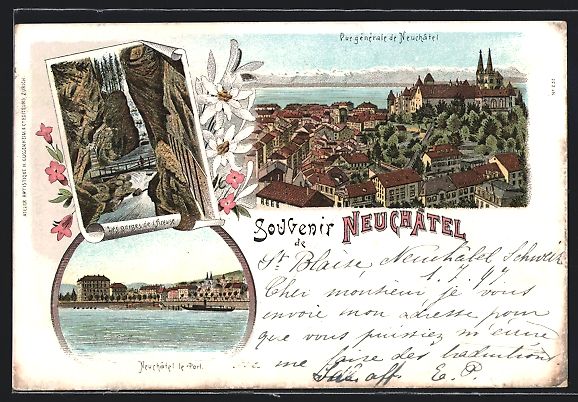 Vue générale de Neuchâtel
Les gorges de l'Areuse
Souvenir de NEUCHÂTEL
St Blaise, Neuchâtel Schweiz
1. 7. 97
Cher monsieur je vous
envoie mon adresse pour
que vous puissiez m'
me faire des traductions
E. P.
Neuchâtel le Port.
ATELIER ARTISTIQUE H. GUGGENHEIM & CO EDITEURS, ZÜRICH.